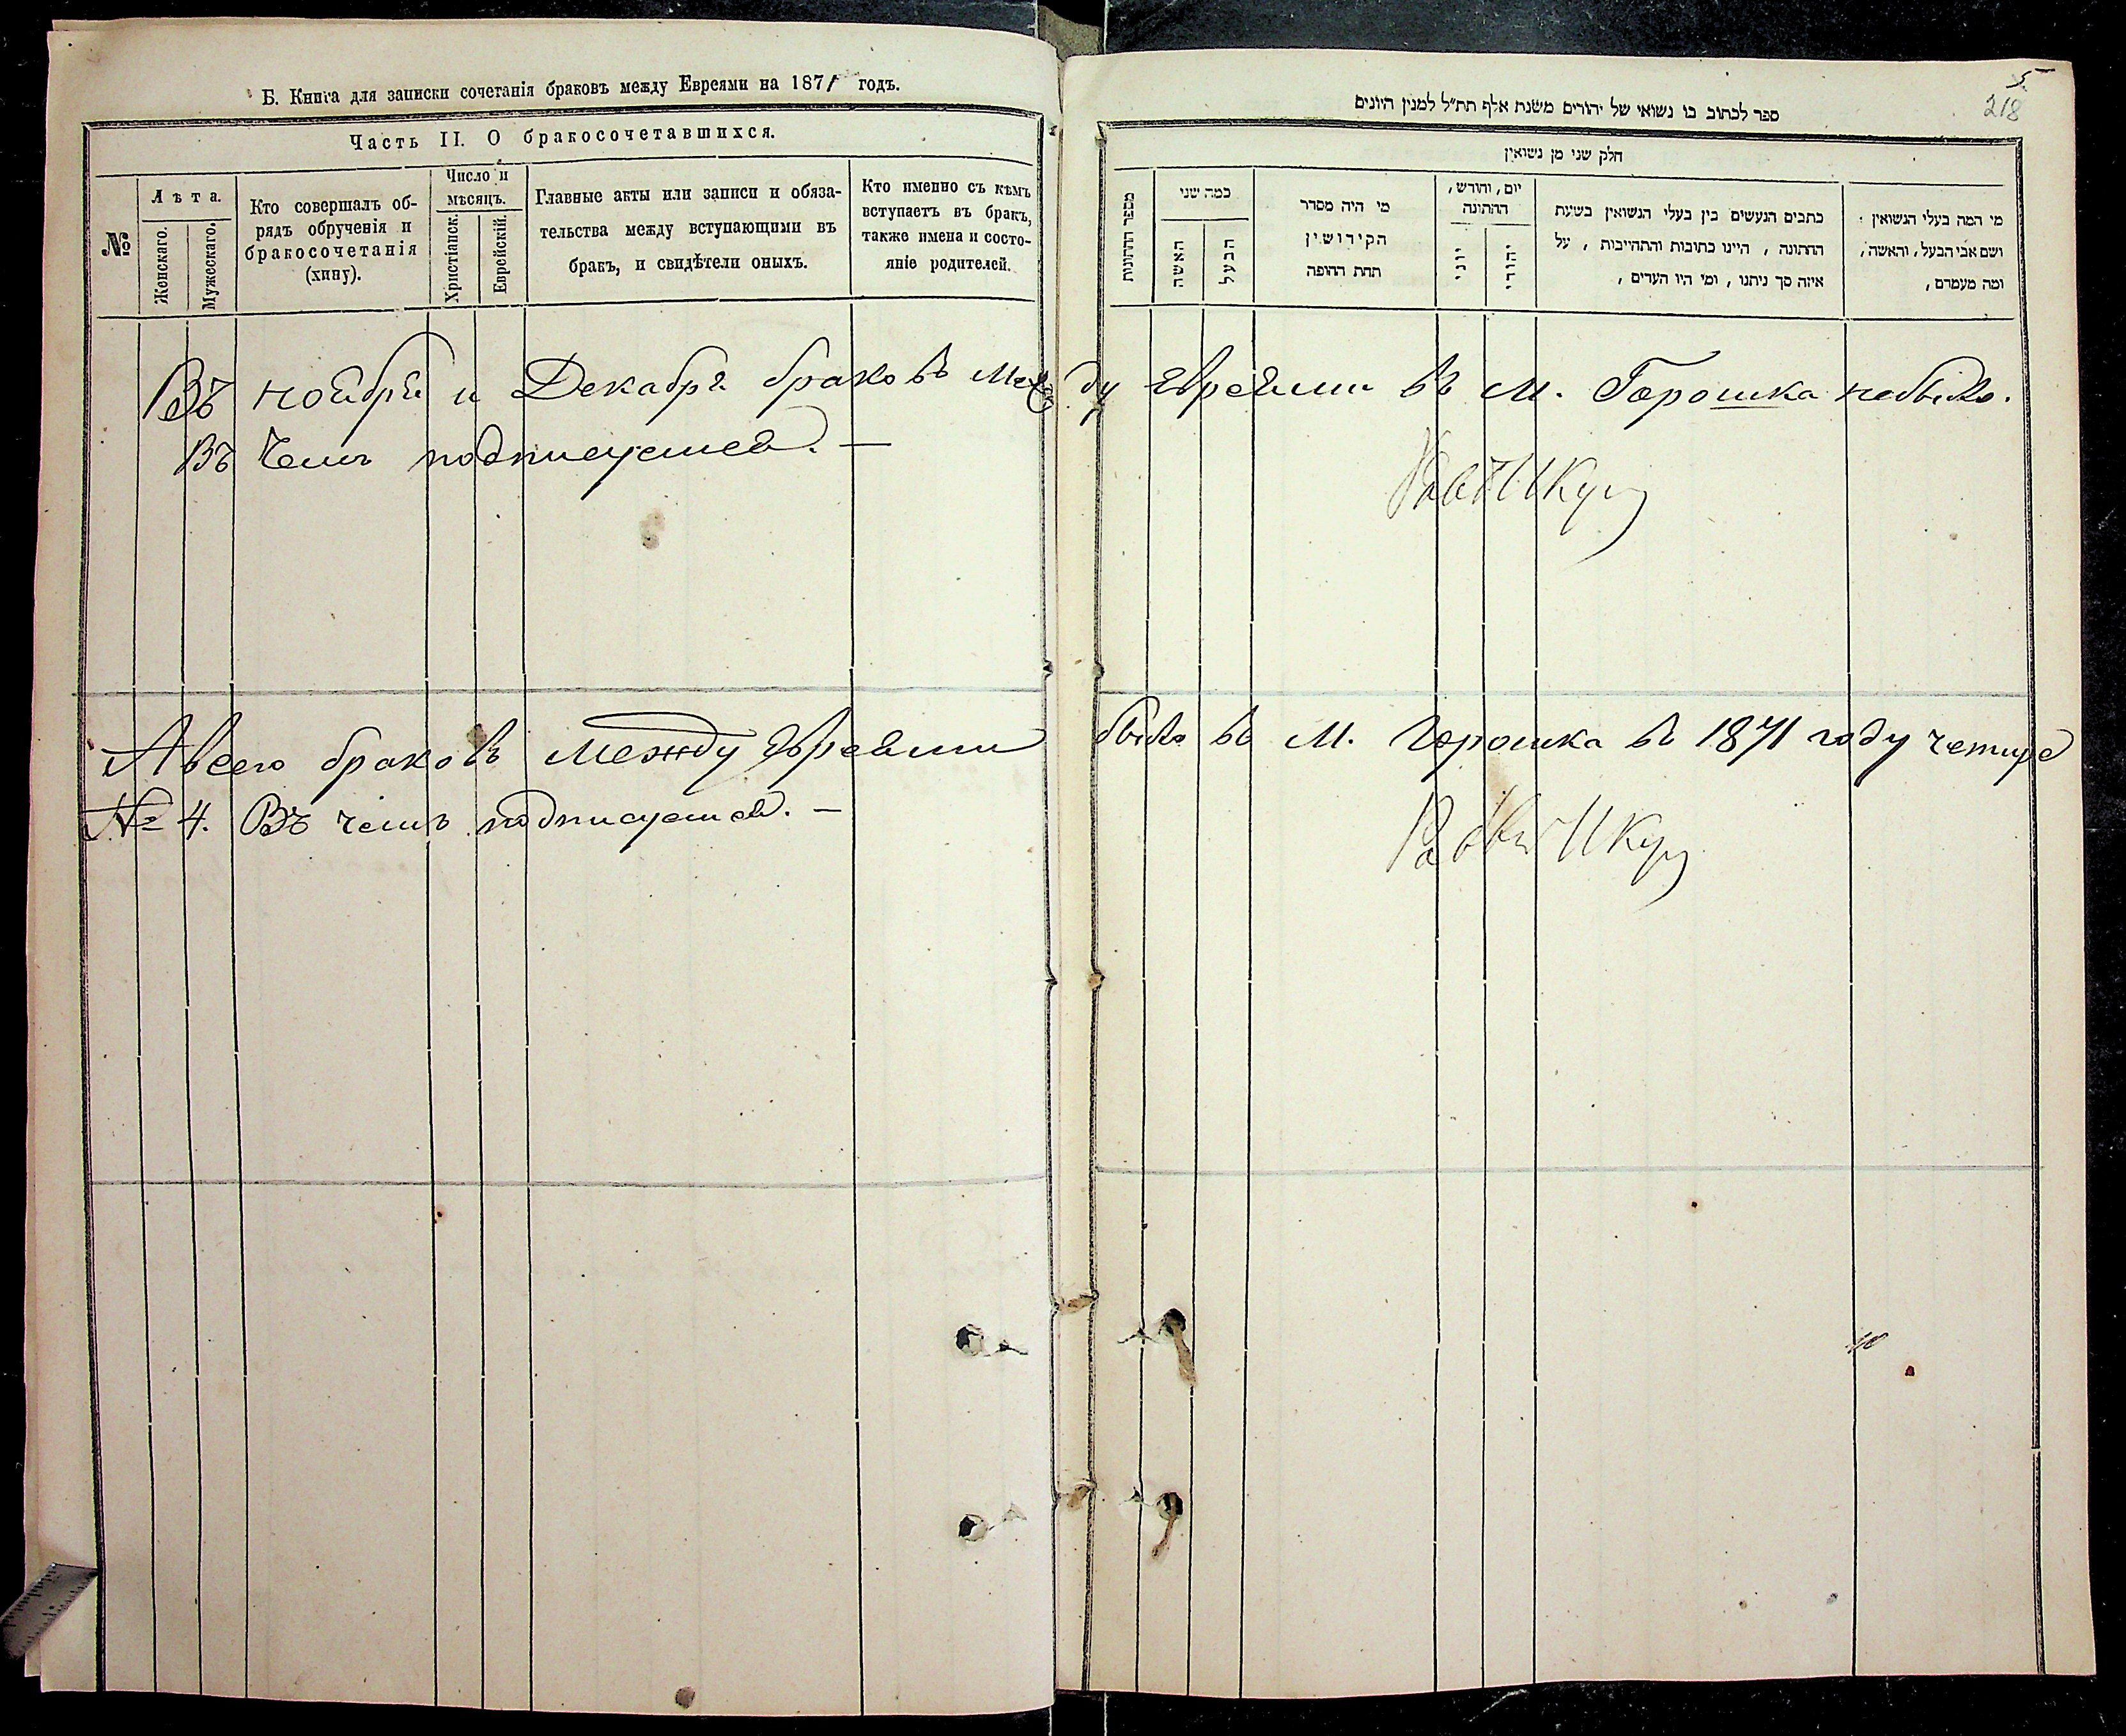 Б. Книга для записки сочетанія браковъ между Евреями на 1871 годъ.
Часть II. О бракосочетавшихся.
№
Лѣта.
Женскаго.
Мужескаго.
Кто совершалъ об-
рядъ обрученія и
бракосочетанія
(хипу).
Число и
мѣсяцъ.
Христіанск.
Еврейскій.
Главные акты или записи и обяза-
тельства между вступающими въ
бракъ, и свидѣтели оныхъ.
Кто именно съ кѣмъ
вступаетъ въ бракъ,
также имена и состо-
яніе родителей.
5
218
ספר לכתוב בו נשואי של יהודים משנת אלף תת״ל למנין היונים
חלק שני מן נשואין
מספר החתונות
כמה שני
האשה
הבעל
מי היה מסדר
הקידושין
תחת החופה
יום, וחודש,
החתונה
יוני
יהודי
כתבים הנעשים בין בעלי הנשואין בשעת
החתונה, היינו כתובות והתחייבות, על
איזה סך ניתנו, ומי היו העדים,
מי המה בעלי הנשואין
ושם אבי הבעל, והאשה,
ומה מעמדם,
Въ ноября и Декабря браковъ между Евреями въ М. Горошка небыло.
Въ чемъ подписуемся. —
А всего браковъ между Евреями было въ М. Горошка въ 1871 году четире
№ 4. Въ чемъ подписуемся. —